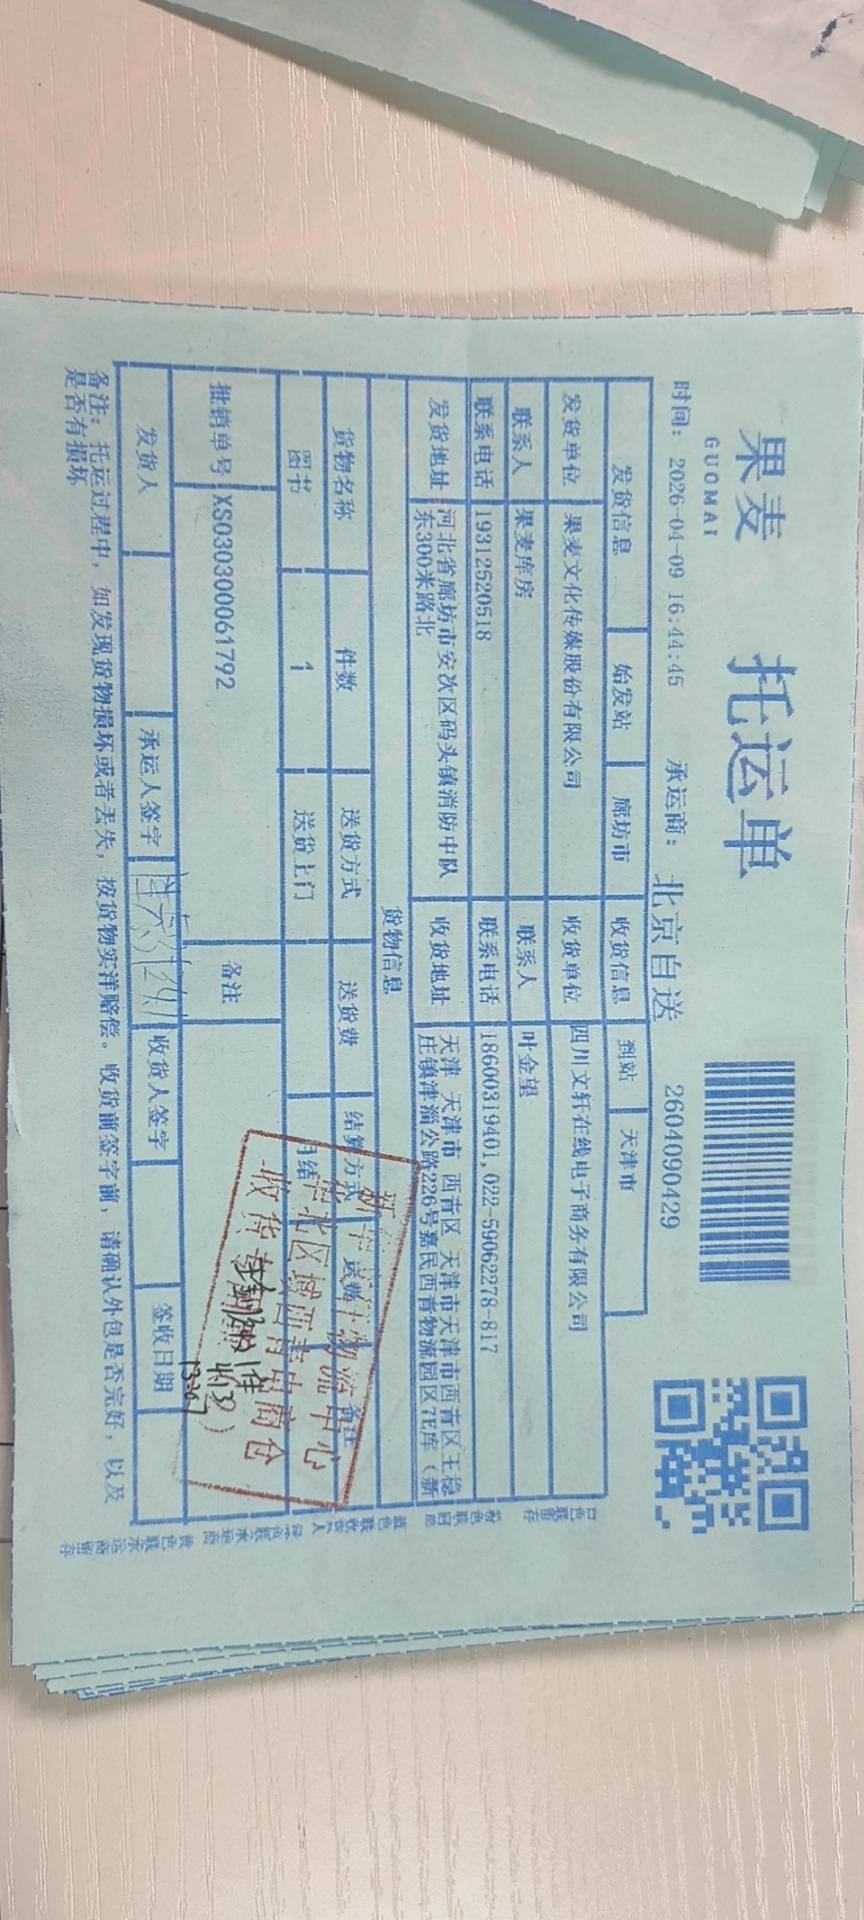 果麦 托运单
GUOMAI
时间：2026-04-09 16:44:45 承运商：北京自送 2604090429
发货信息 始发站 廊坊市 收货信息 到站 天津市
发货单位 果麦文化传媒股份有限公司 收货单位 四川文轩在线电子商务有限公司
联系人 果麦库房 联系人 叶金望
联系电话 19312520518 联系电话 18600319401,022-59062278-817
发货地址 河北省廊坊市安次区码头镇消防中队东300米路北 收货地址 天津 天津市 西青区 天津市天津市西青区王稳庄镇津淄公路226号嘉民西青物流园区7E库（新
货物信息
货物名称 件数 送货方式 送货费 结算方式 送费 备注
图书 1 送货上门 月结
批销单号 XS030300061792 备注
发货人 承运人签字 收货人签字 签收日期
备注：托运过程中，如发现货物损坏或者丢失，按货物实洋赔偿。收货前签字前，请确认外包是否完好，以及
是否有损坏
白色联留存 粉色联回单 蓝色联收货人 绿色联承运商 黄色联承运商留存
物流中心
华北区域西青电商仓
收货专用章